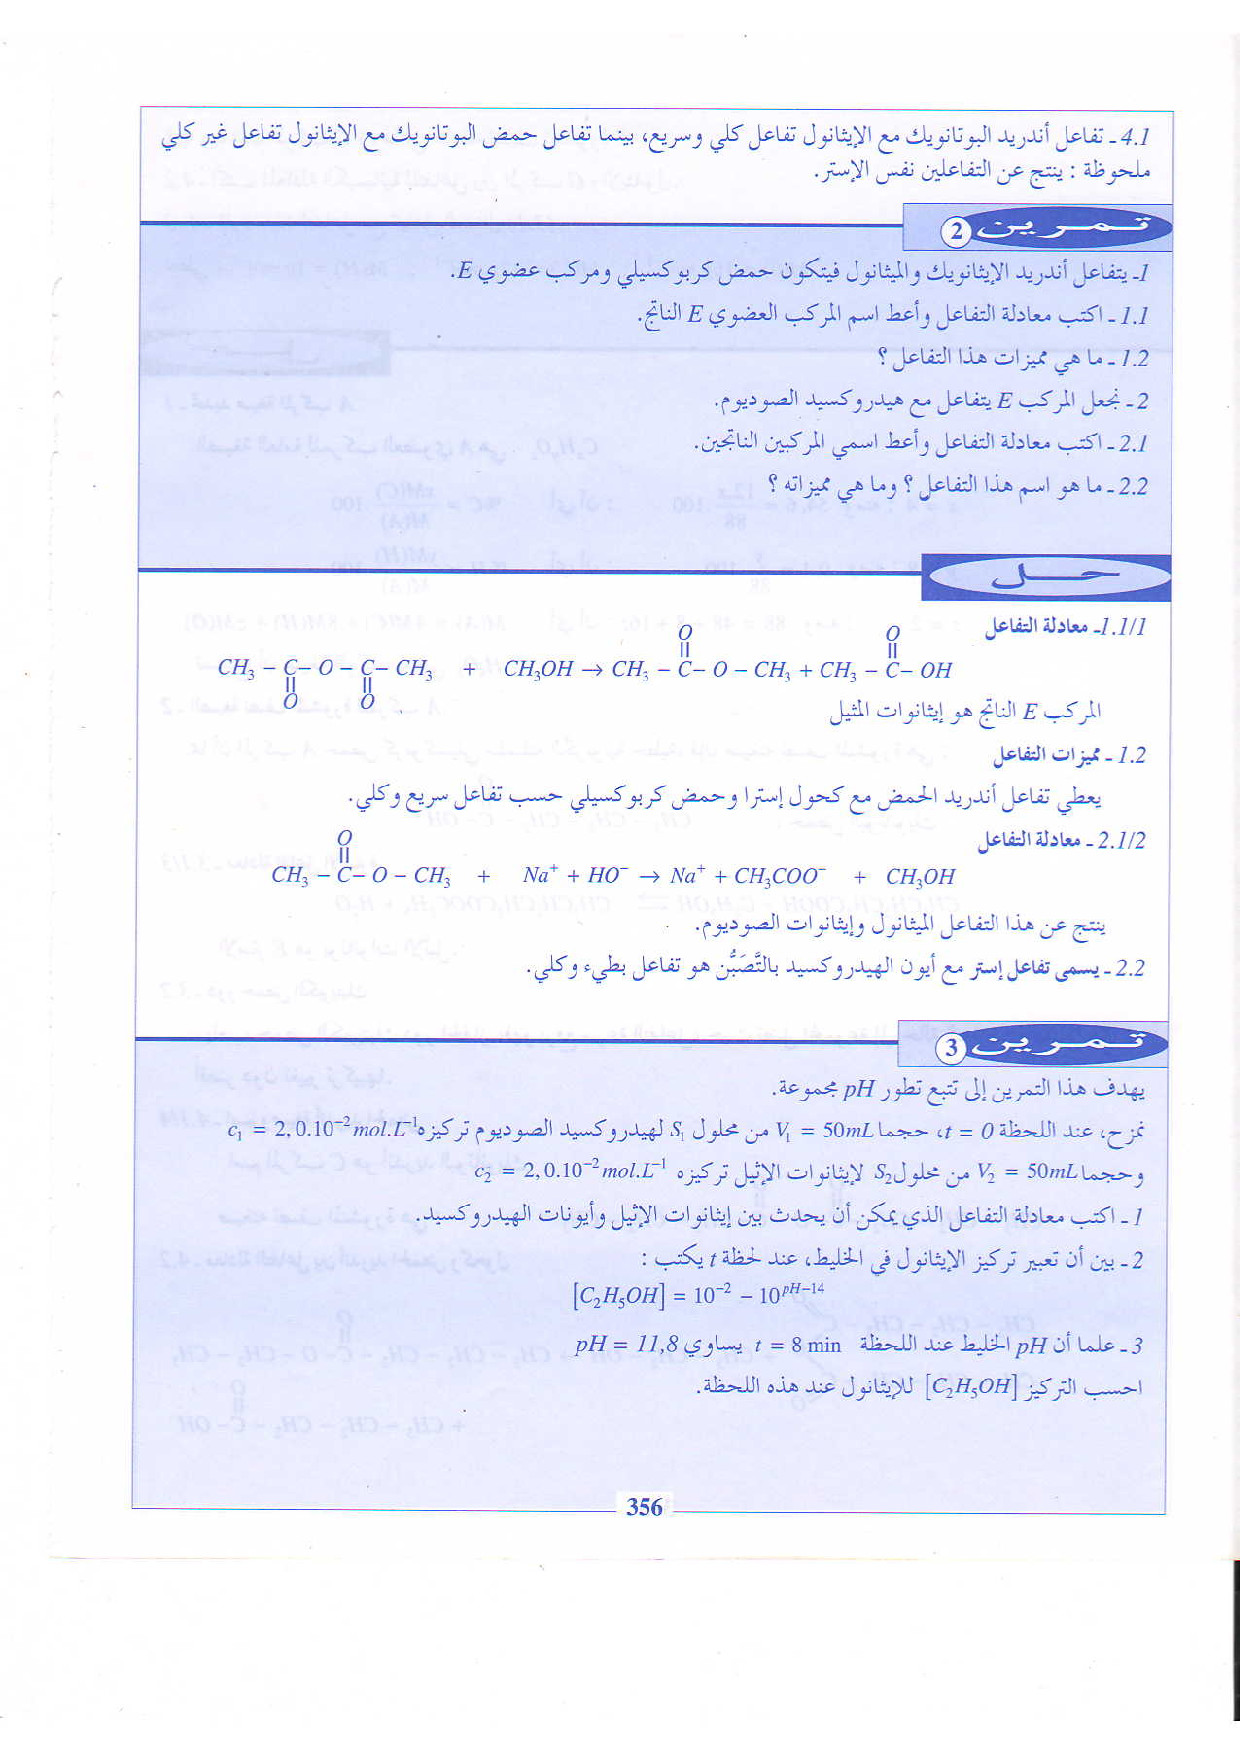 4.1 ـ تفاعل أندريد البوتانويك مع الإيثانول تفاعل كلي وسريع، بينما تفاعل حمض البوتانويك مع الإيثانول تفاعل غير كلي
ملحوظة : ينتج عن التفاعلين نفس الإستر.
تمرين 2
1ـ يتفاعل أندريد الإيثانويك والميثانول فيتكون حمض كربوكسيلي ومركب عضوي E.
1.1 ـ اكتب معادلة التفاعل وأعط اسم المركب العضوي E الناتج.
1.2 ـ ما هي مميزات هذا التفاعل ؟
2 ـ نجعل المركب E يتفاعل مع هيدروكسيد الصوديوم.
2.1 ـ اكتب معادلة التفاعل وأعط اسمي المركبين الناتجين.
2.2 ـ ما هو اسم هذا التفاعل ؟ وما هي مميزاته ؟
حل
1.1/1ـ معادلة التفاعل
O O
CH₃ – C– O – C– CH₃ + CH₃OH → CH₃ – C– O – CH₃ + CH₃ – C– OH
O O
المركب E الناتج هو إيثانوات المثيل
1.2 ـ مميزات التفاعل
يعطي تفاعل أندريد الحمض مع كحول إسترا وحمض كربوكسيلي حسب تفاعل سريع وكلي.
2.1/2 ـ معادلة التفاعل
O
CH₃ – C– O – CH₃ + Na⁺ + HO⁻ → Na⁺ + CH₃COO⁻ + CH₃OH
ينتج عن هذا التفاعل الميثانول وإيثانوات الصوديوم.
2.2 ـ يسمى تفاعل إستر مع أيون الهيدروكسيد بالتَّصَبُّن هو تفاعل بطيء وكلي.
تمرين 3
يهدف هذا التمرين إلى تتبع تطور pH مجموعة.
نمزج، عند اللحظة t = 0، حجما V₁ = 50mL من محلول S₁ لهيدروكسيد الصوديوم تركيزه c₁ = 2,0.10⁻² mol.L⁻¹
وحجما V₂ = 50mL من محلول S₂ لإيثانوات الإثيل تركيزه c₂ = 2,0.10⁻² mol.L⁻¹
1 ـ اكتب معادلة التفاعل الذي يمكن أن يحدث بين إيثانوات الاثيل وأيونات الهيدروكسيد.
2 ـ بين أن تعبير تركيز الإيثانول في الخليط، عند لحظة t يكتب :
[C₂H₅OH] = 10⁻² – 10^(pH–14)
3 ـ علما أن pH الخليط عند اللحظة t = 8 min يساوي pH = 11,8
احسب التركيز [C₂H₅OH] للإيثانول عند هذه اللحظة.
356